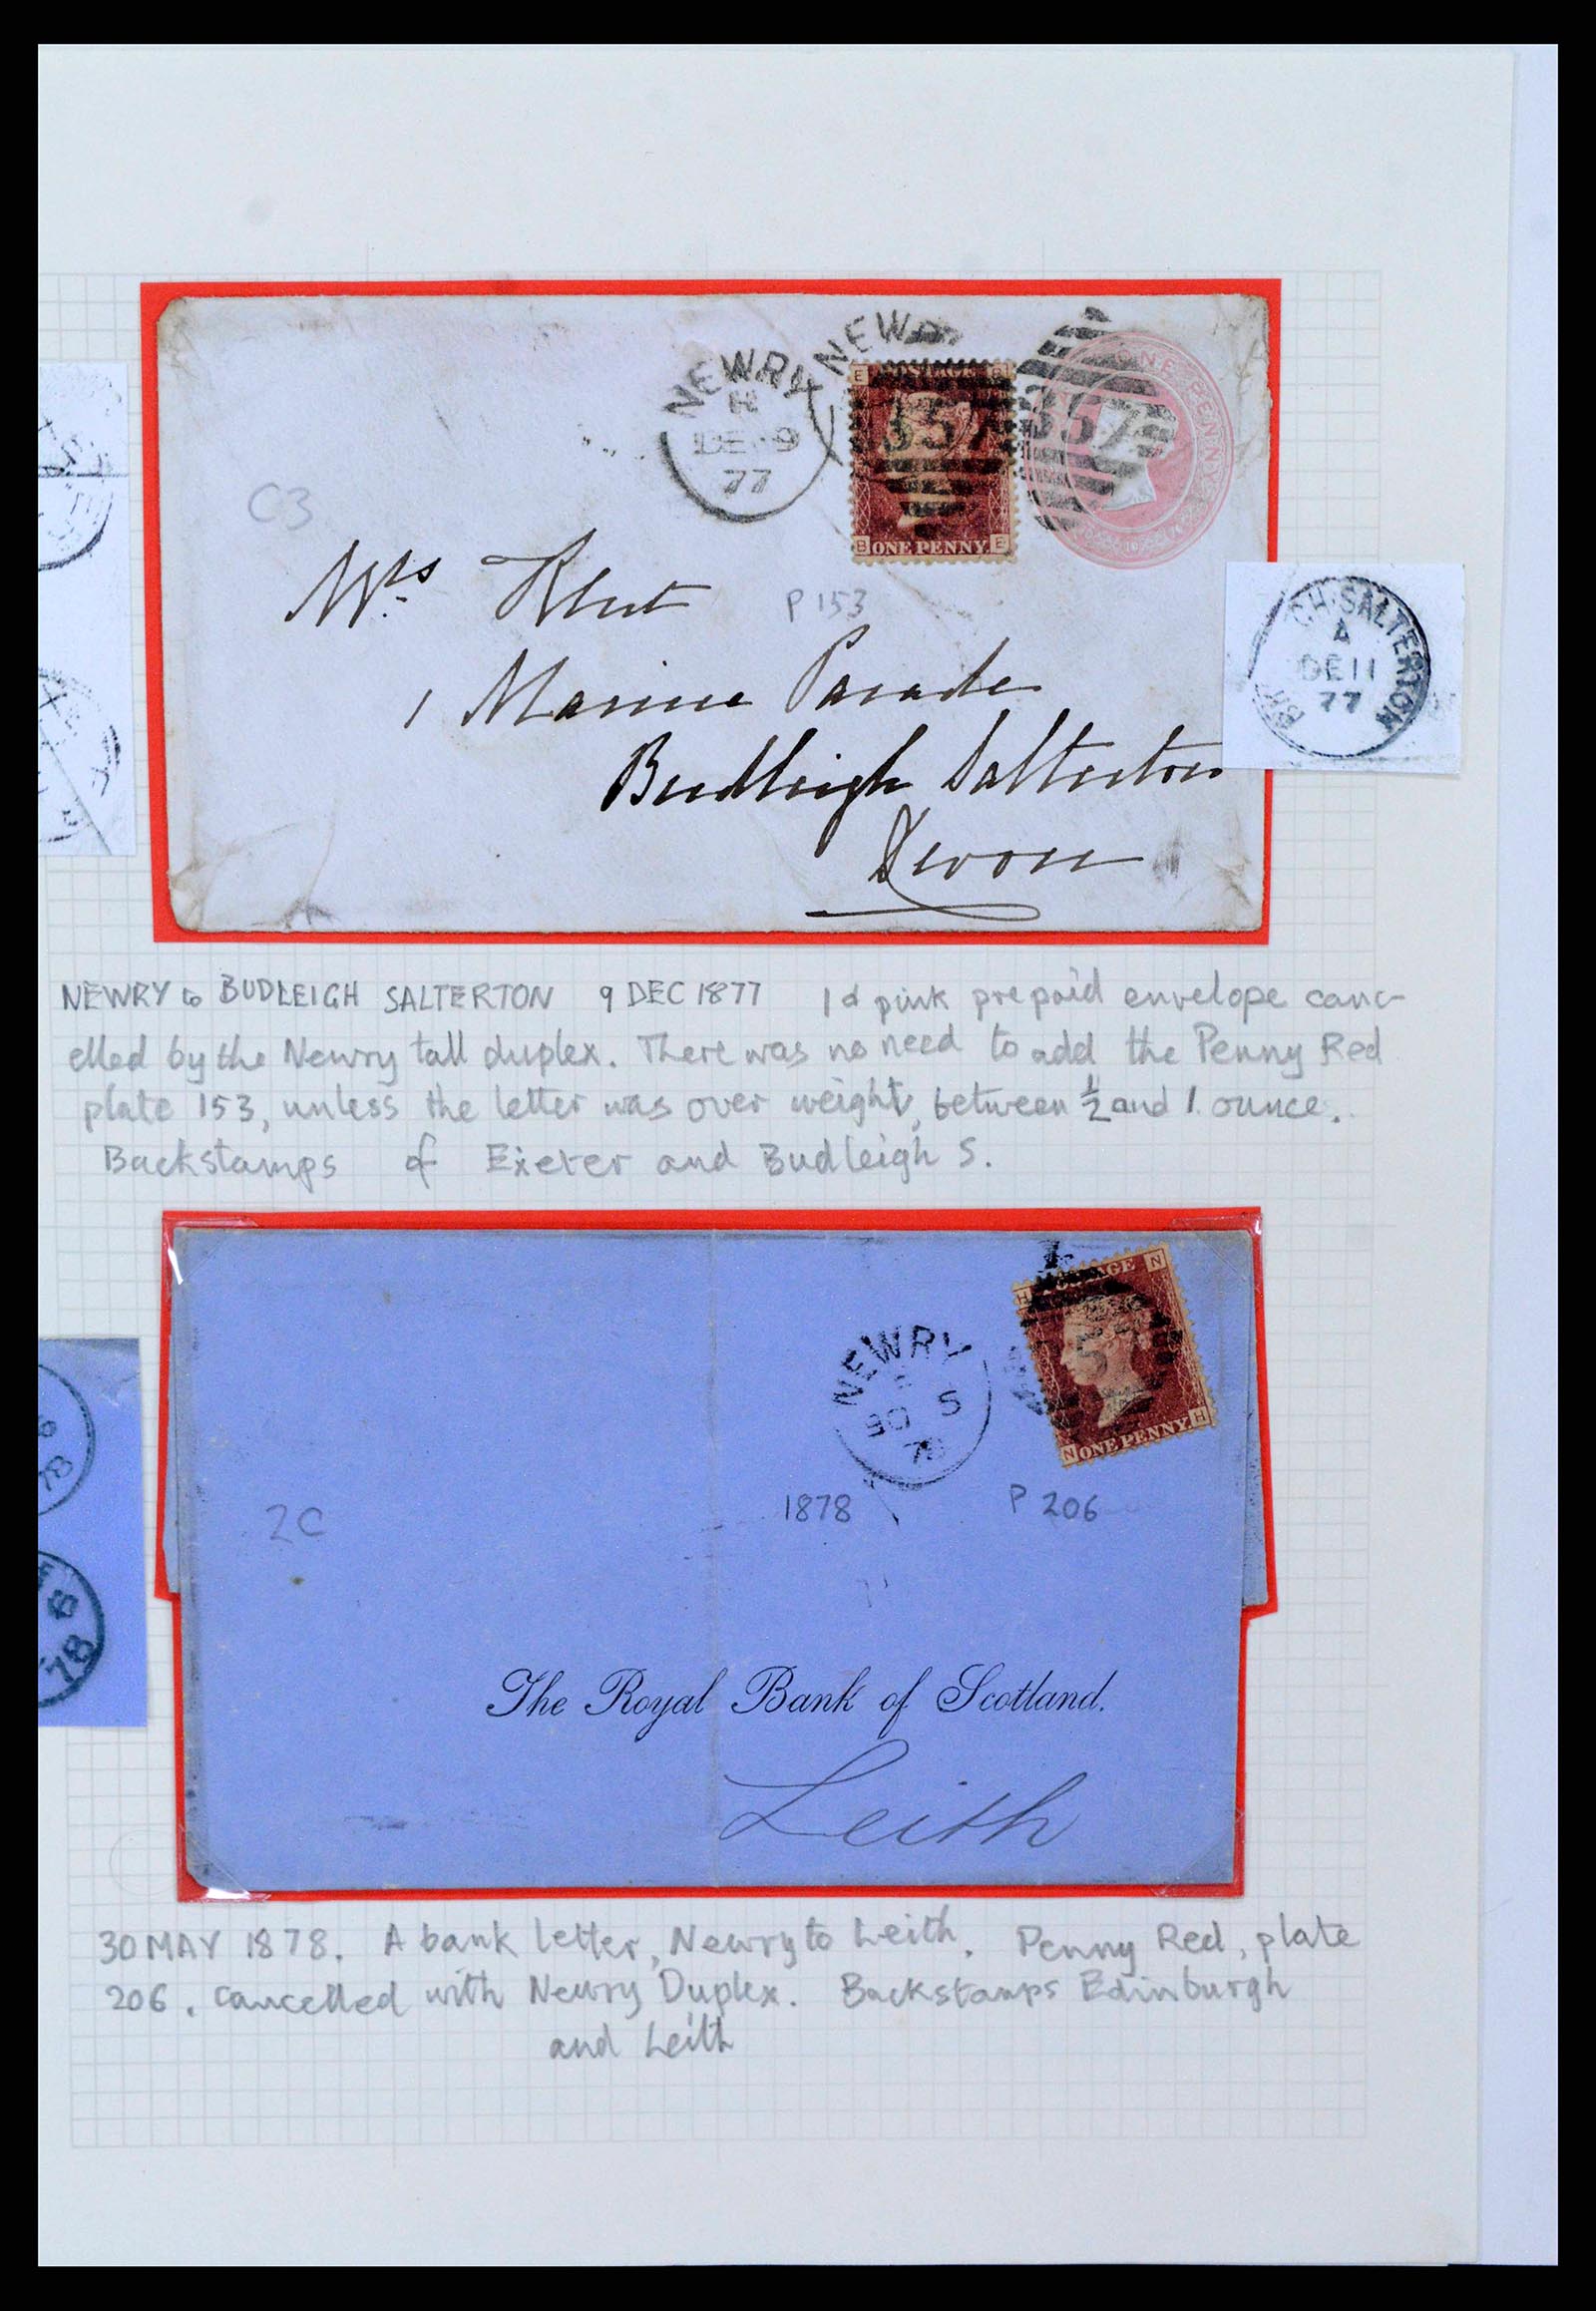 NEWRY
R
DE 9
77
NEW
E
POSTAGE
357
357
B
ONE PENNY
E
ONE PENNY
C3
Mrs
P 153
1 Marine Parade
Budleigh Salterton
Devon
CH·SALTERTON
A
DE 11
77
NEWRY to BUDLEIGH SALTERTON 9 DEC 1877 1d pink prepaid envelope canc-
elled by the Newry tall duplex. There was no need to add the Penny Red
plate 153, unless the letter was over weight, between ½ and 1 ounce.
Backstamps of Exeter and Budleigh S.
H
POSTAGE
N
57
N
ONE PENNY
H
NEWRY
78
1878
P 206
2C
6
78
6
78
The Royal Bank of Scotland.
Leith
30 MAY 1878. A bank letter, Newry to Leith. Penny Red, plate
206. cancelled with Newry Duplex. Backstamps Edinburgh
and Leith